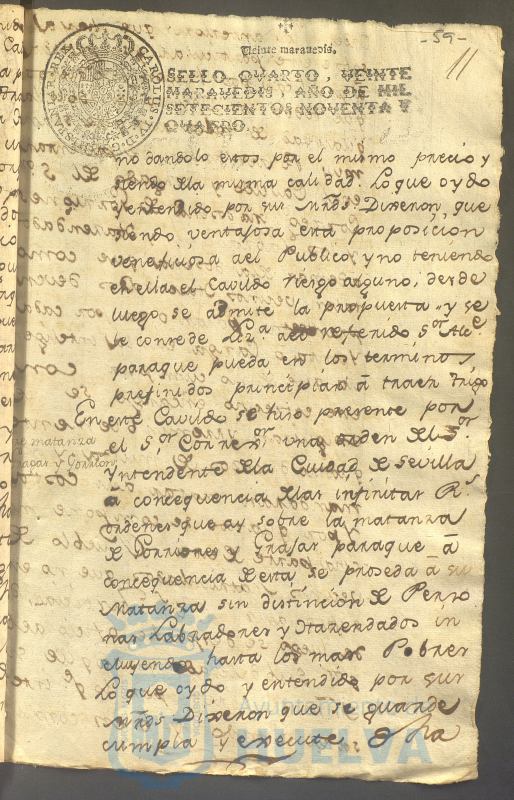 -59-
11
Veinte maravedis.
SELLO QVARTO, VEINTE
MARAVEDIS, AÑO DE MIL
SETECIENTOS NOVENTA Y
QVATRO.
CAROLUS IV D. G. HISPANIAR. REX
no dandolo estos por el mismo precio y
siendo dela misma calidad. Lo que oydo
y entendido por sus mrds. Dixeron, que
siendo ventajosa esta proposicion
veneficiosa del Publico y no teniendo
en ella el Cavildo riesgo alguno, desde
luego se admite la propuesta y se
le concede Lza. del referido Sor. Alce.
paraque pueda en los terminos
prefinidos principiar â traer trigo
En este Cavildo se tuvo presente por
el Sor. Correxor. una orden del Sor.
matanza
Yntendente dela Ciudad de Sevilla
y Gorrion
a consequencia delas infinitas Rs.
ordenes que ay sobre la matanza
de Gorriones y Grajas paraque â
consequencia de esta, se proseda â su
Matanza sin distincion de Perso
nas Labradores y Hazendados in
cluyendo hasta los mas Pobres
Lo que oydo y entendido por sus
mrds. Dixeron que se guarde
cumpla y execute dha
Ayuntamiento de
HUELVA